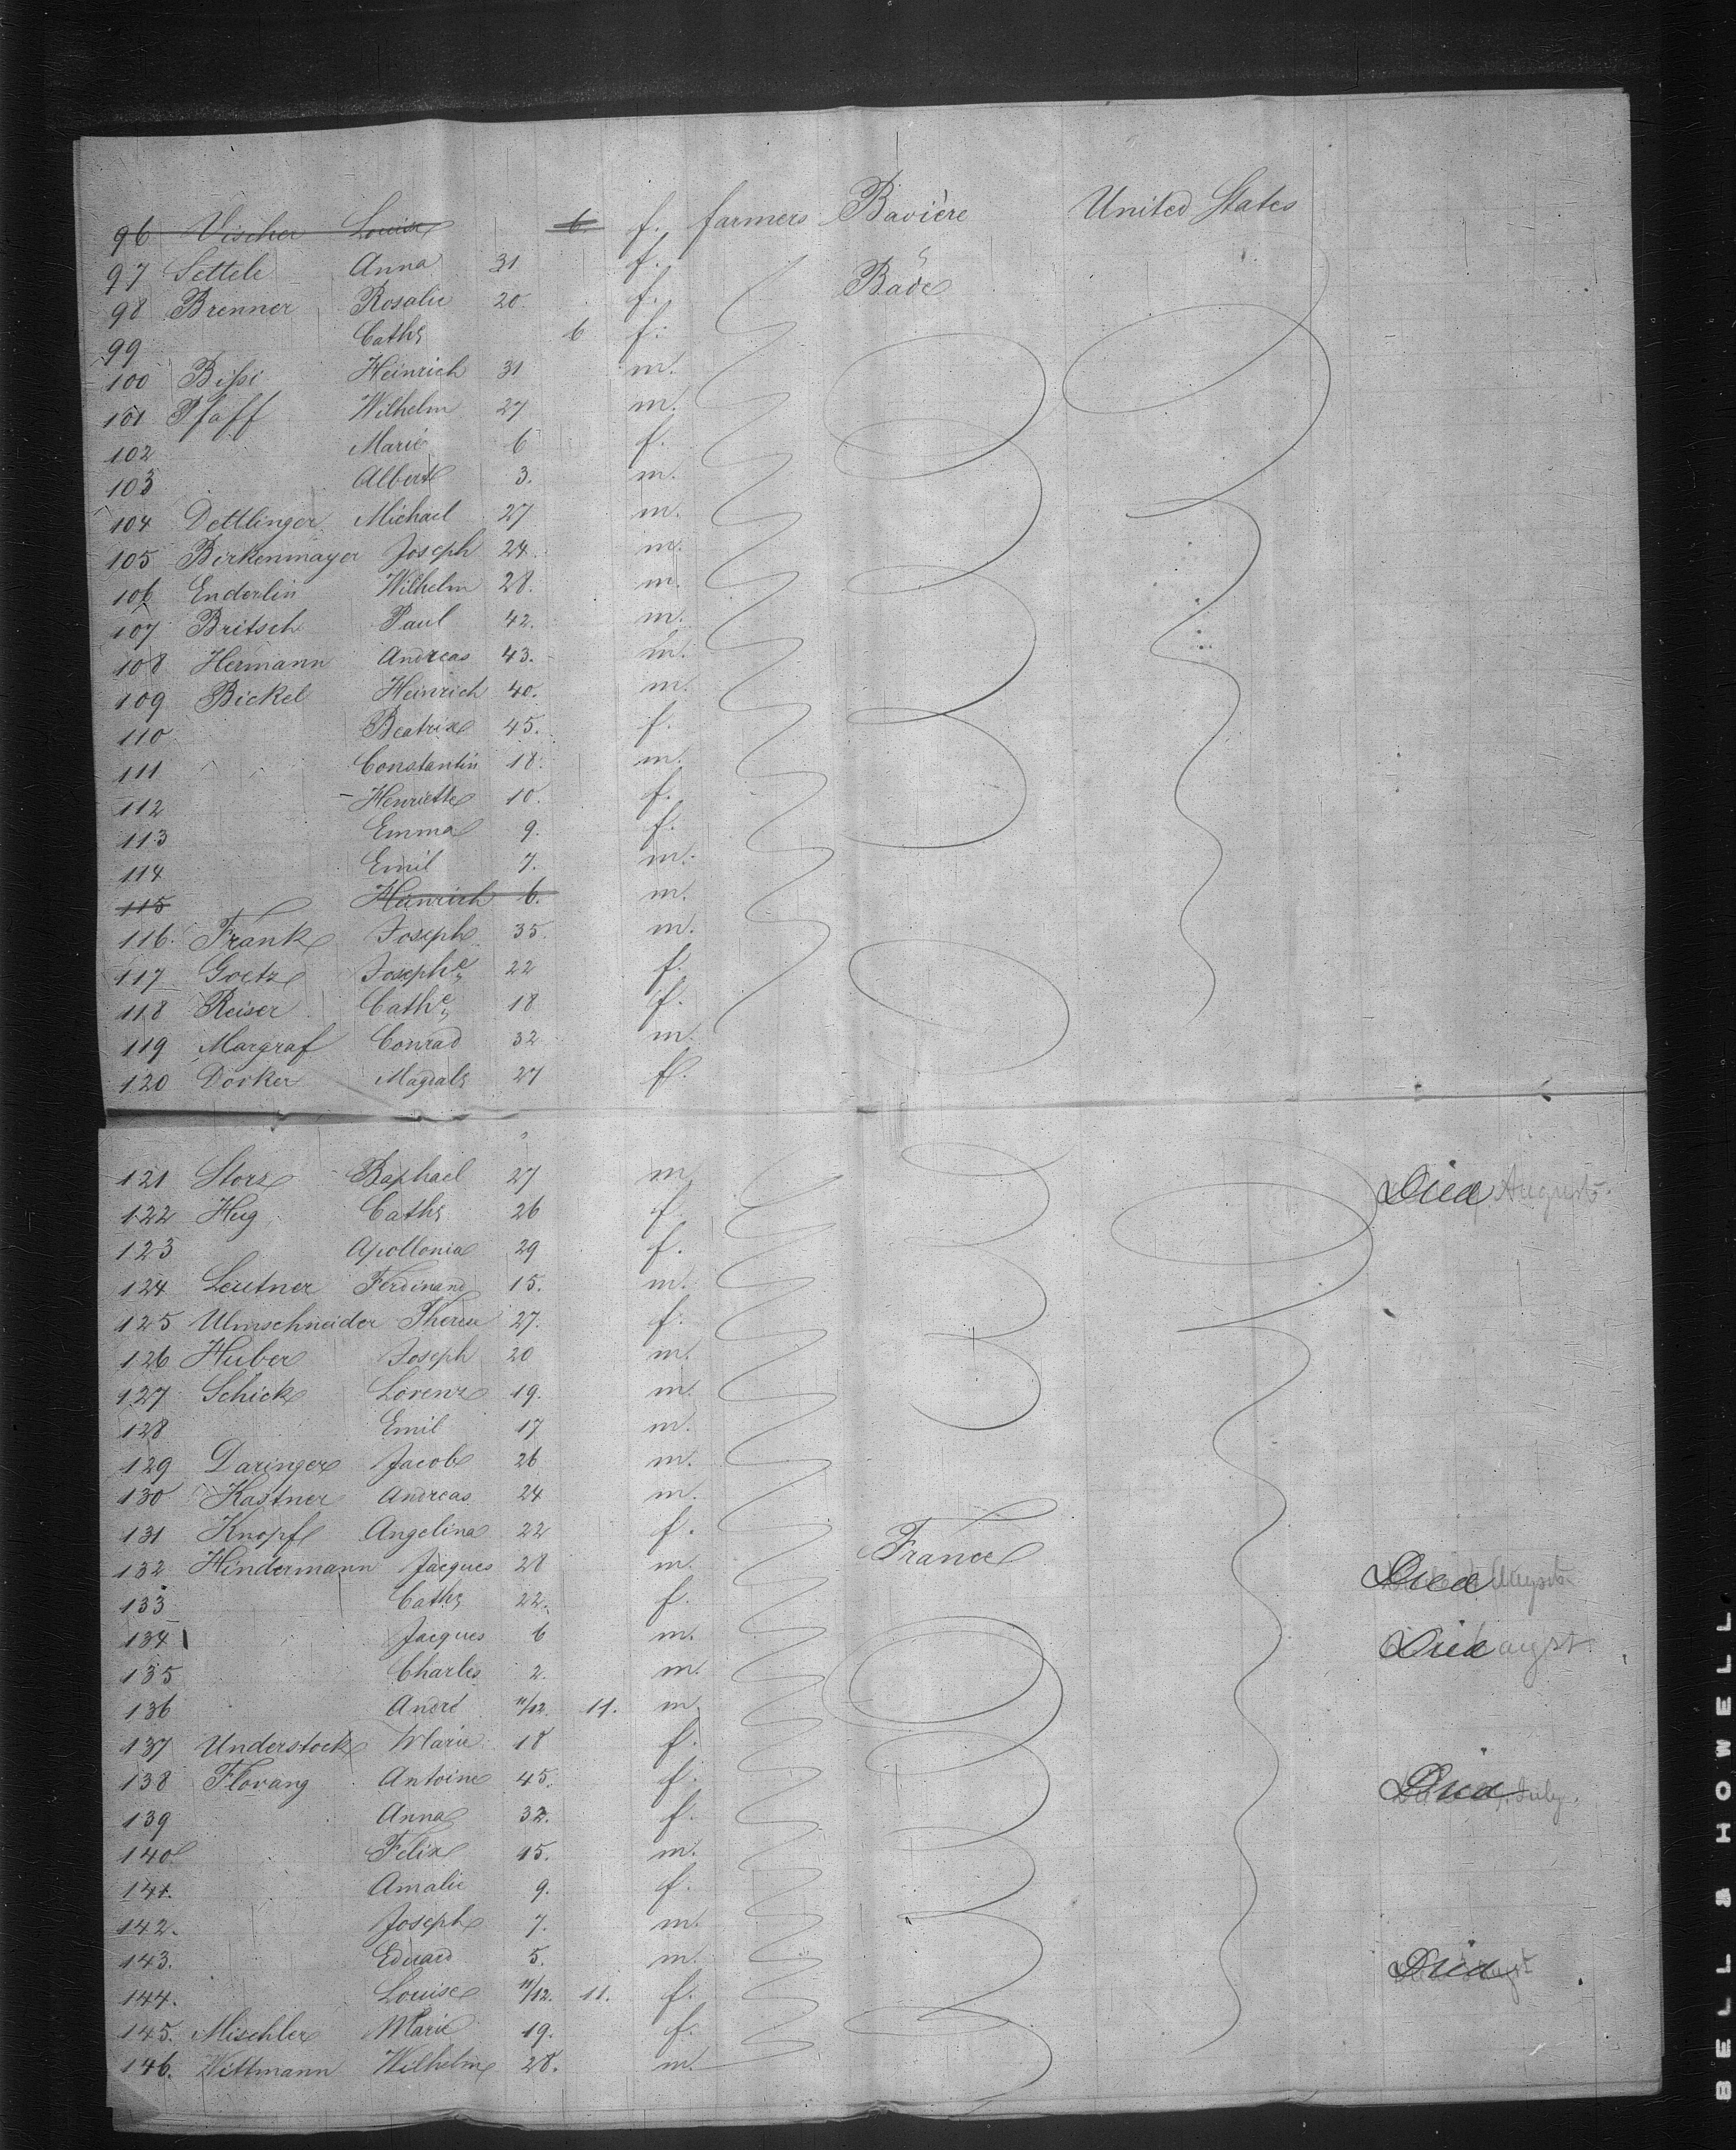 96 Vischer Louise 6. f. farmers Bavière United States
97 Settele Anna 31 f.
98 Brenner Rosalie 20 f. Bade
99 Cathe 6 f.
100 Bissi Heinrich 31 m.
101 Pfaff Wilhelm 27 m.
102 Marie 6 f.
103 Albert 3. m.
104 Dettlinger Michael 27 m.
105 Birkenmayer Joseph 24. m.
106 Enderlin Wilhelm 28. m.
107 Britsch Paul 42. m.
108 Hermann Andreas 43. m.
109 Bickel Heinrich 40. m.
110 Beatrix 45. f.
111 Constantin 18. m.
112 Henriette 10. f.
113 Emma 9. f.
114 Emil 7. m.
115 Heinrich 6. m.
116. Frank Joseph 35. m.
117 Goetz Josephe 22 f.
118 Reiser Cathe 18 f.
119 Margraf Conrad 32 m.
120 Dorker Magdale 27 f.
121 Storz Raphael 27 m. Died August.
122 Hug Cathe 26 f.
123 Apollonia 29 f.
124 Leutner Ferdinand 15. m.
125 Ulmschneider Therese 27. f.
126 Huber Joseph 20 m.
127 Schick Lorenz 19. m.
128 Emil 17 m.
129 Daringer Jacob 26 m.
130 Kastner Andreas 24 m.
131 Knopf Angelina 22 f.
132 Hindermann Jacques 28 m. France Died Augst
133 Cathe 22. f.
134 Jacques 6 m. Died augst.
135 Charles 2. m.
136 André 11/12. 11. m.
137 Understock Marie 18 f.
138 Florang Antoine 45. f. Died July.
139 Anna 32. f.
140 Felix 15. m.
141. Amalie 9. f.
142. Joseph 7. m.
143. Eduard 5. m. Died
144. Louise 11/12. 11. f.
145. Mischler Marie 19. f.
146. Wittmann Wilhelm 28. m.
BELL & HOWELL